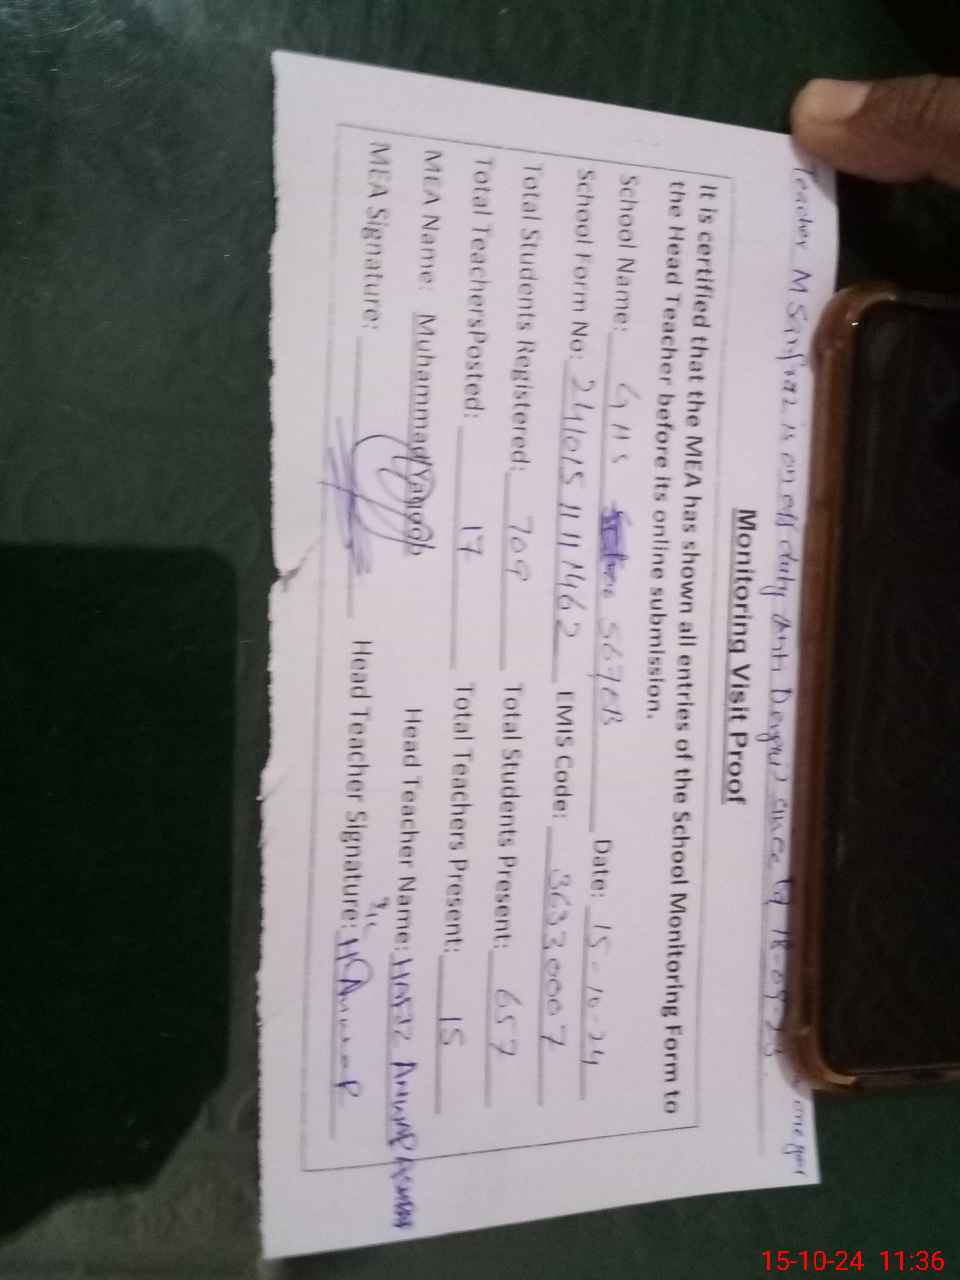 Teacher M Sarfraz is on off duty Anti Dengui since 18-09-23.
Monitoring Visit Proof
It is certified that the MEA has shown all entries of the School Monitoring Form to
the Head Teacher before its online submission.
School Name: GHS 567EB Date: 15-10-24
School Form No: 241015111462 EMIS Code: 36330007
Total Students Registered: 709 Total Students Present: 657
Total TeachersPosted: 17 Total Teachers Present: 15
MEA Name: Muhammad Yaqoob Head Teacher Name: HAFIZ ANWAR
MEA Signature: Head Teacher Signature:
15-10-24 11:36